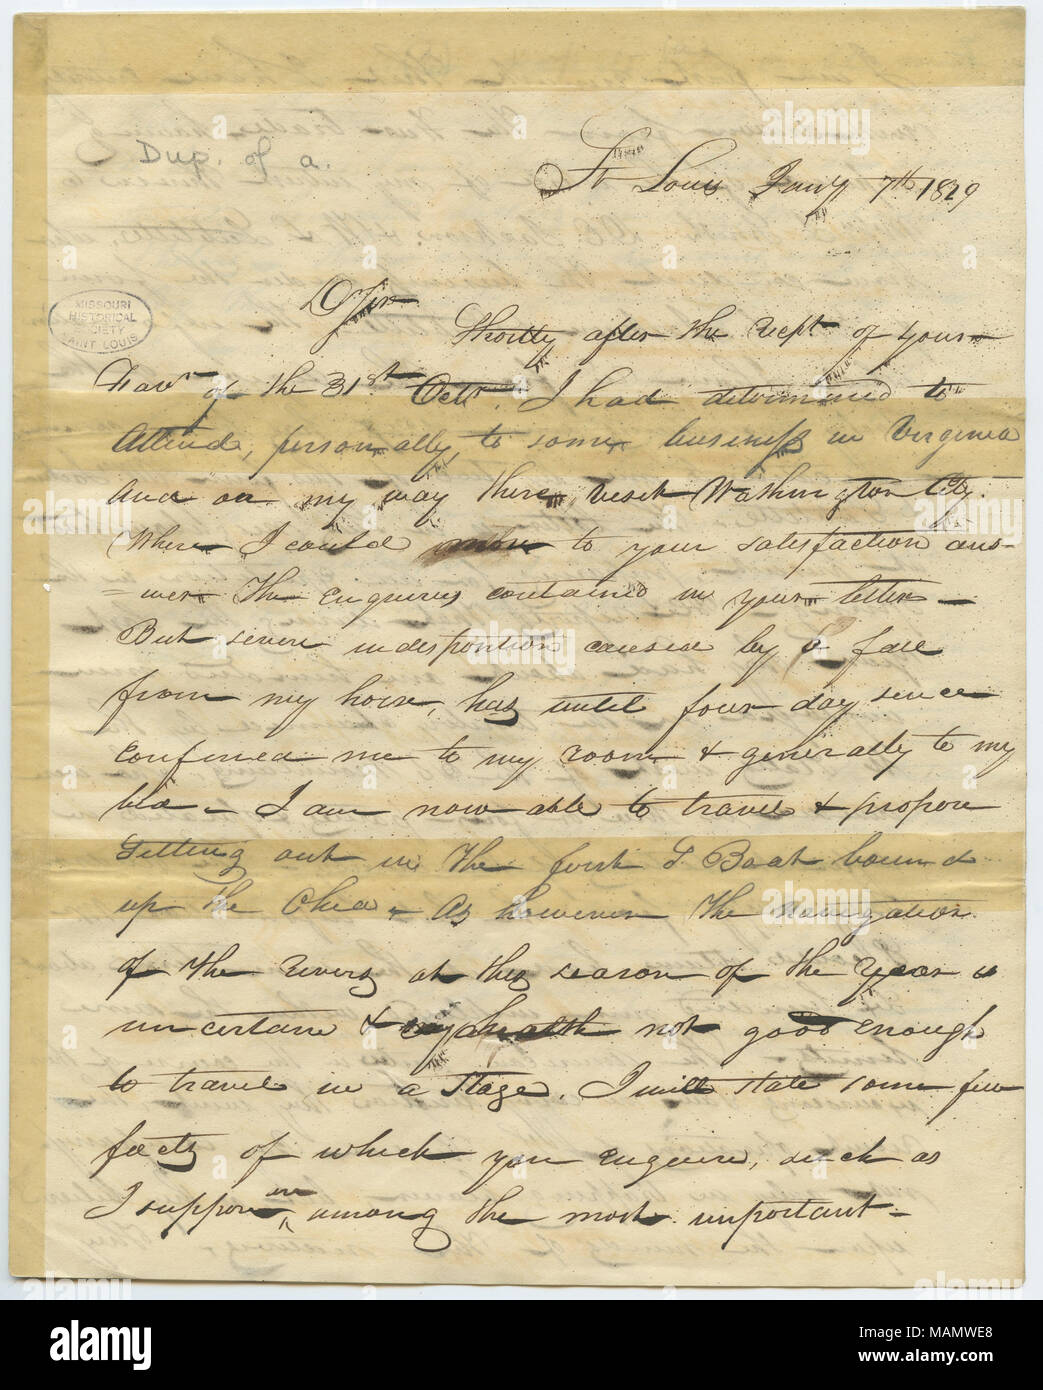 Dup. of a.
St Louis Jany 7th 1829
MISSOURI
HISTORICAL
SOCIETY
SAINT LOUIS
D Sir
Shortly after the rect of your
Favr of the 31st Octr. I had determined to
Attend, personally, to some business in Virginia
And on my way there, visit Washington City.
Where I could more to your satisfaction ans-
=wer the enquiries contained in your letter -
But severe indisposition caused by a fall
from my horse, has until four day since
confined me to my room & generally to my
bed - I am now able to travel & propose
Setting out in the first S Boat bound
up the Ohio - As however the navigation
of the rivers at this season of the year is
uncertain & my health not good enough
to travel in a stage. I will state some few
facts of which you enquire, such as
I suppose are among the most important -
alamy
Image ID: MAMWE8
www.alamy.com